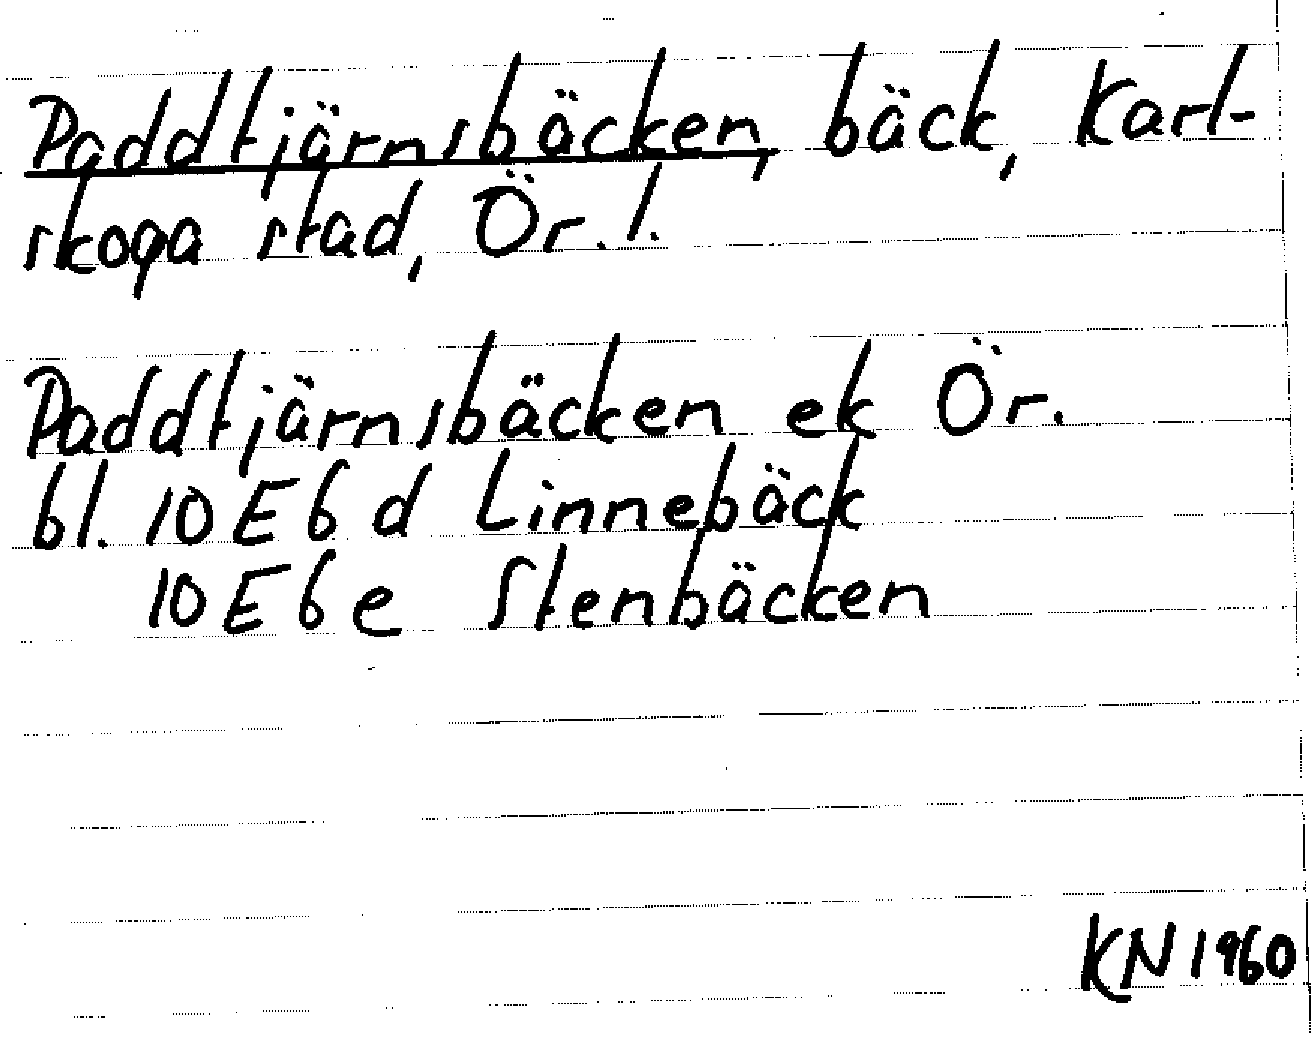 Paddtjärnsbäcken, bäck, Karl-
skoga stad, Ör. l.
Paddtjärnsbäcken ek Ör.
bl. 10 E 6 d Linnebäck
10 E 6 e Stenbäcken
KN 1960